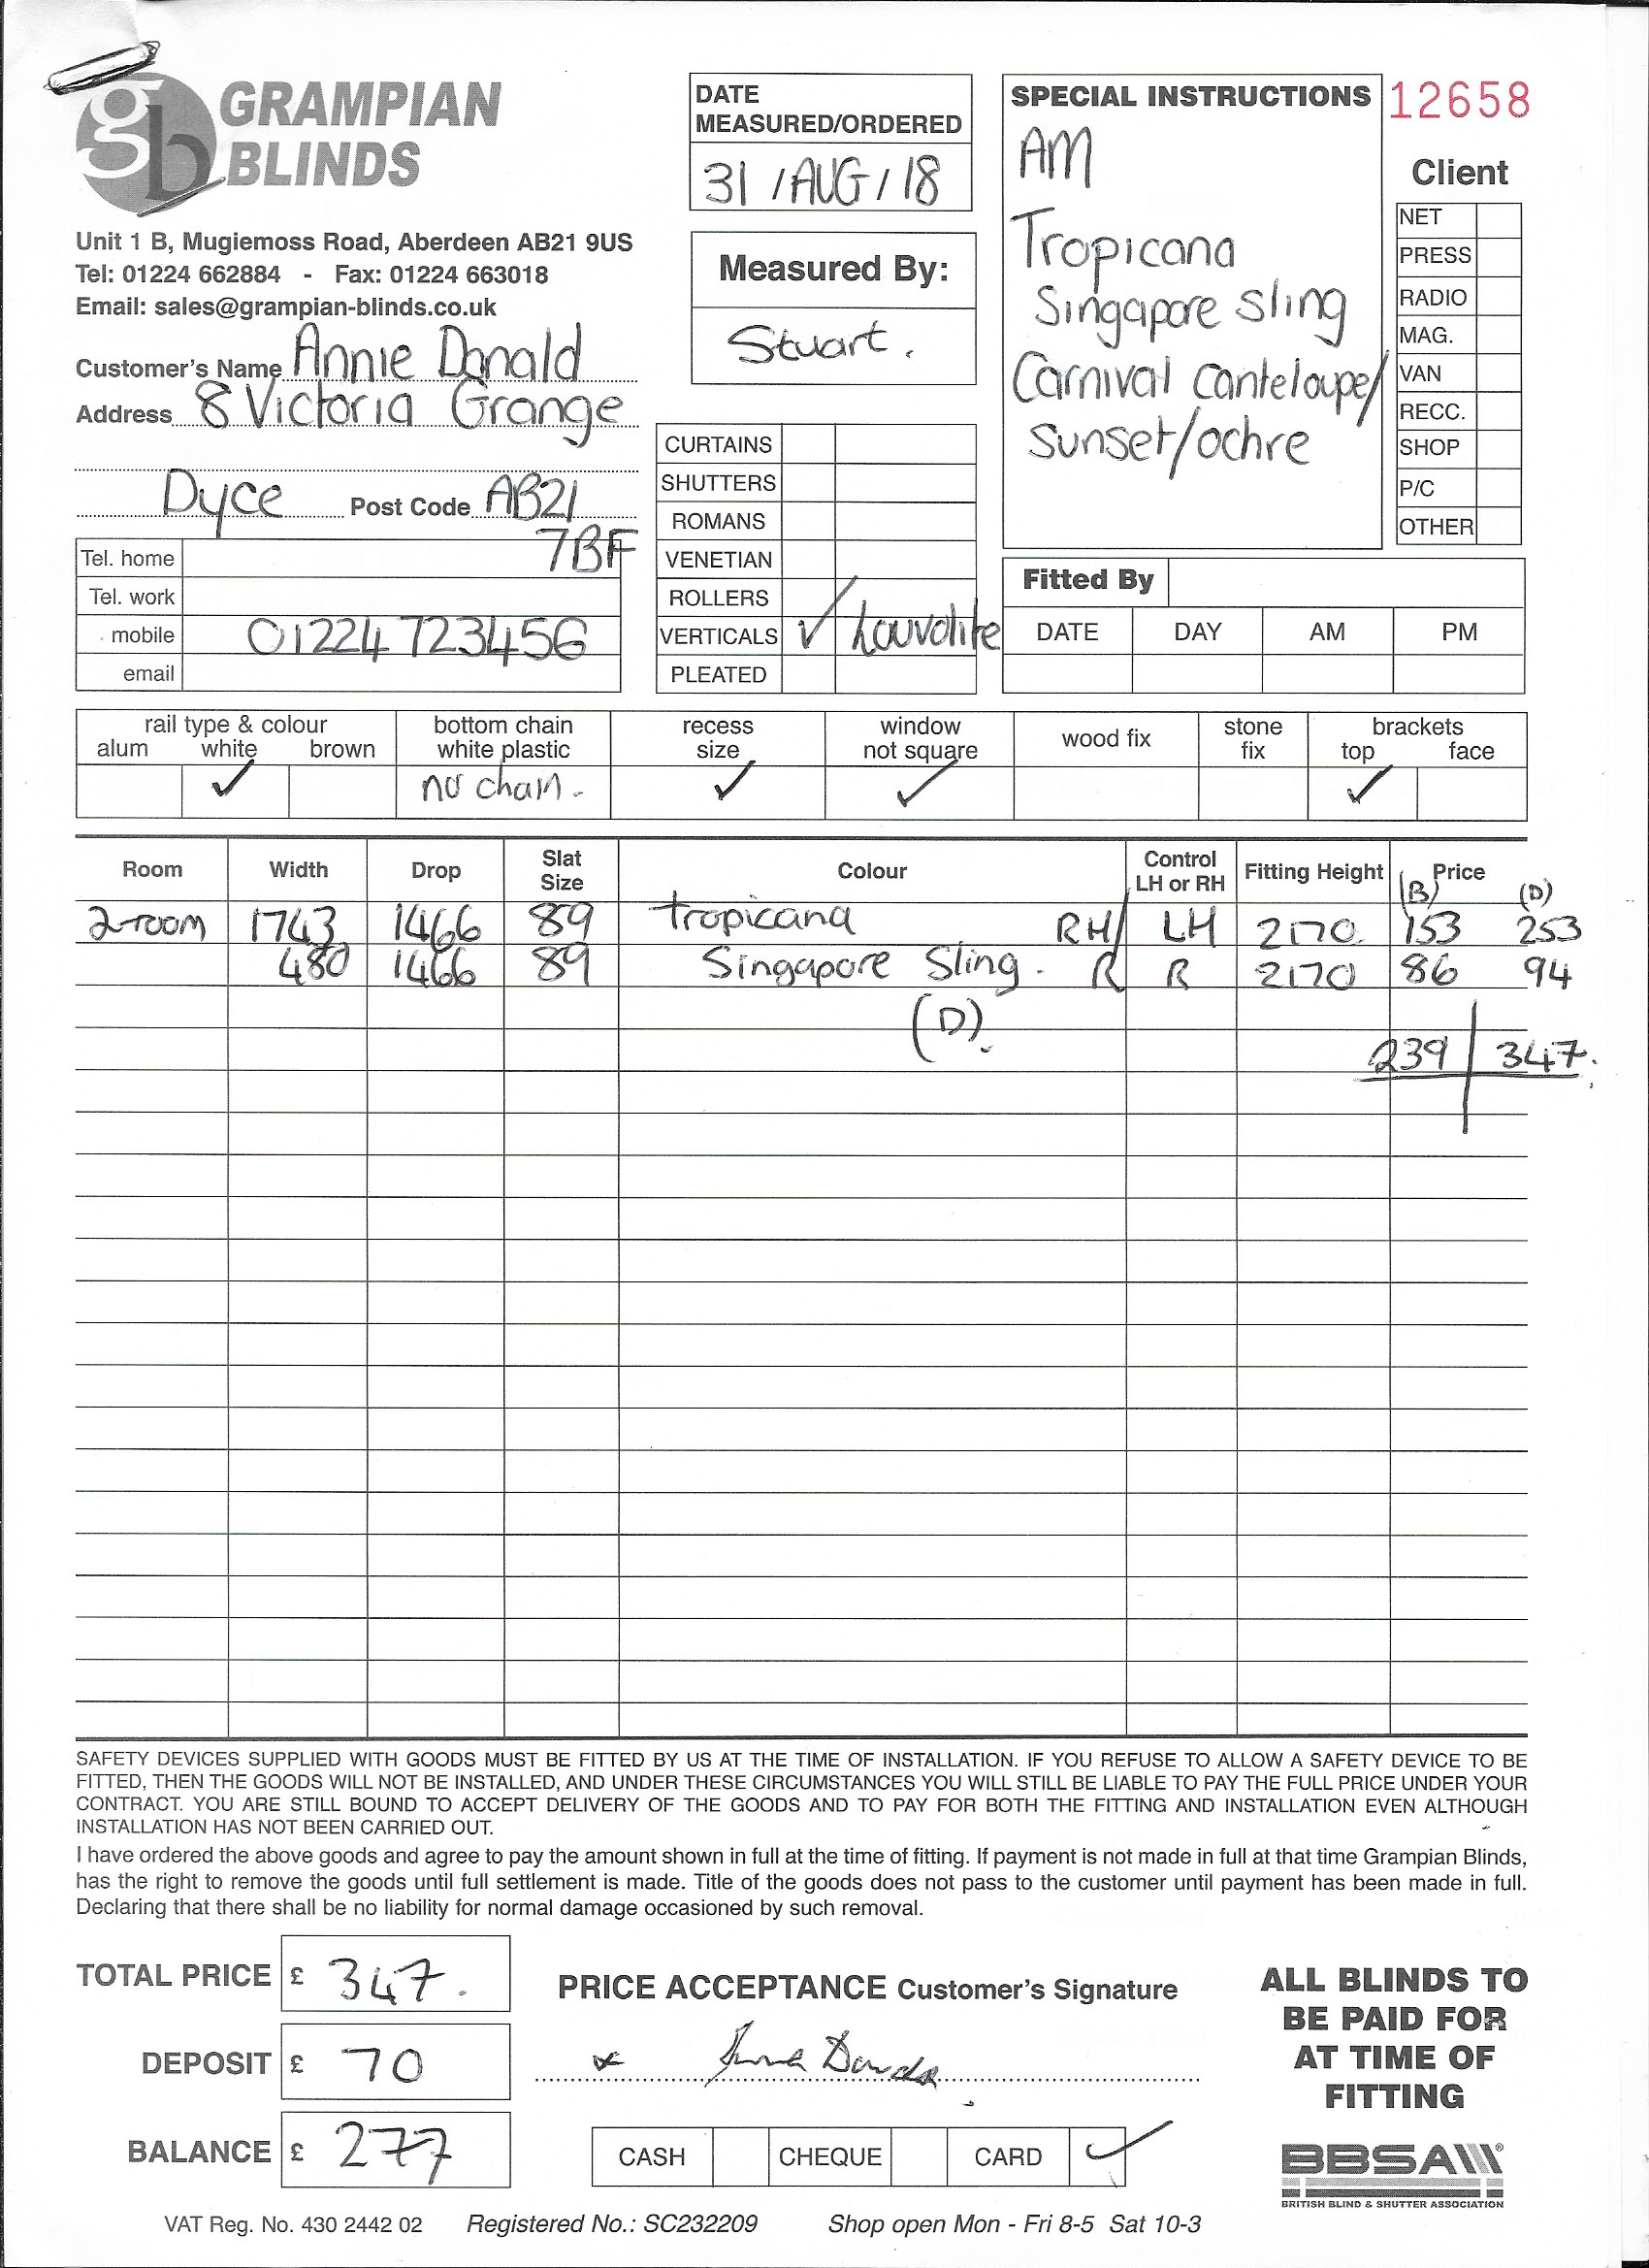 gb GRAMPIAN
BLINDS
Unit 1 B, Mugiemoss Road, Aberdeen AB21 9US
Tel: 01224 662884 - Fax: 01224 663018
Email: sales@grampian-blinds.co.uk
Customer's Name Annie Donald
Address 8 Victoria Grange
Dyce Post Code AB21
7BF
Tel. home
Tel. work
mobile 01224 723456
email
DATE
MEASURED/ORDERED
31 / AUG / 18
Measured By:
Stuart.
CURTAINS
SHUTTERS
ROMANS
VENETIAN
ROLLERS
VERTICALS ✓ Louvolite
PLEATED
SPECIAL INSTRUCTIONS
AM
Tropicana
Singapore Sling
Carnival Canteloupe/
Sunset/ochre
12658
Client
NET
PRESS
RADIO
MAG.
VAN
RECC.
SHOP
P/C
OTHER
Fitted By
DATE DAY AM PM
rail type & colour bottom chain recess window wood fix stone brackets
alum white brown white plastic size not square fix top face
✓ no chain. ✓ ✓ ✓
Room Width Drop Slat Size Colour Control LH or RH Fitting Height Price
(B) (D)
2-room 1743 1466 89 tropicana RH/ LH 2170 153 253
480 1466 89 Singapore Sling. R R 2170 86 94
(D).
239 347.
SAFETY DEVICES SUPPLIED WITH GOODS MUST BE FITTED BY US AT THE TIME OF INSTALLATION. IF YOU REFUSE TO ALLOW A SAFETY DEVICE TO BE
FITTED, THEN THE GOODS WILL NOT BE INSTALLED, AND UNDER THESE CIRCUMSTANCES YOU WILL STILL BE LIABLE TO PAY THE FULL PRICE UNDER YOUR
CONTRACT. YOU ARE STILL BOUND TO ACCEPT DELIVERY OF THE GOODS AND TO PAY FOR BOTH THE FITTING AND INSTALLATION EVEN ALTHOUGH
INSTALLATION HAS NOT BEEN CARRIED OUT.
I have ordered the above goods and agree to pay the amount shown in full at the time of fitting. If payment is not made in full at that time Grampian Blinds,
has the right to remove the goods until full settlement is made. Title of the goods does not pass to the customer until payment has been made in full.
Declaring that there shall be no liability for normal damage occasioned by such removal.
TOTAL PRICE £ 347.
DEPOSIT £ 70
BALANCE £ 277
PRICE ACCEPTANCE Customer's Signature
x
CASH CHEQUE CARD ✓
ALL BLINDS TO
BE PAID FOR
AT TIME OF
FITTING
BBSA®
BRITISH BLIND & SHUTTER ASSOCIATION
VAT Reg. No. 430 2442 02 Registered No.: SC232209 Shop open Mon - Fri 8-5 Sat 10-3